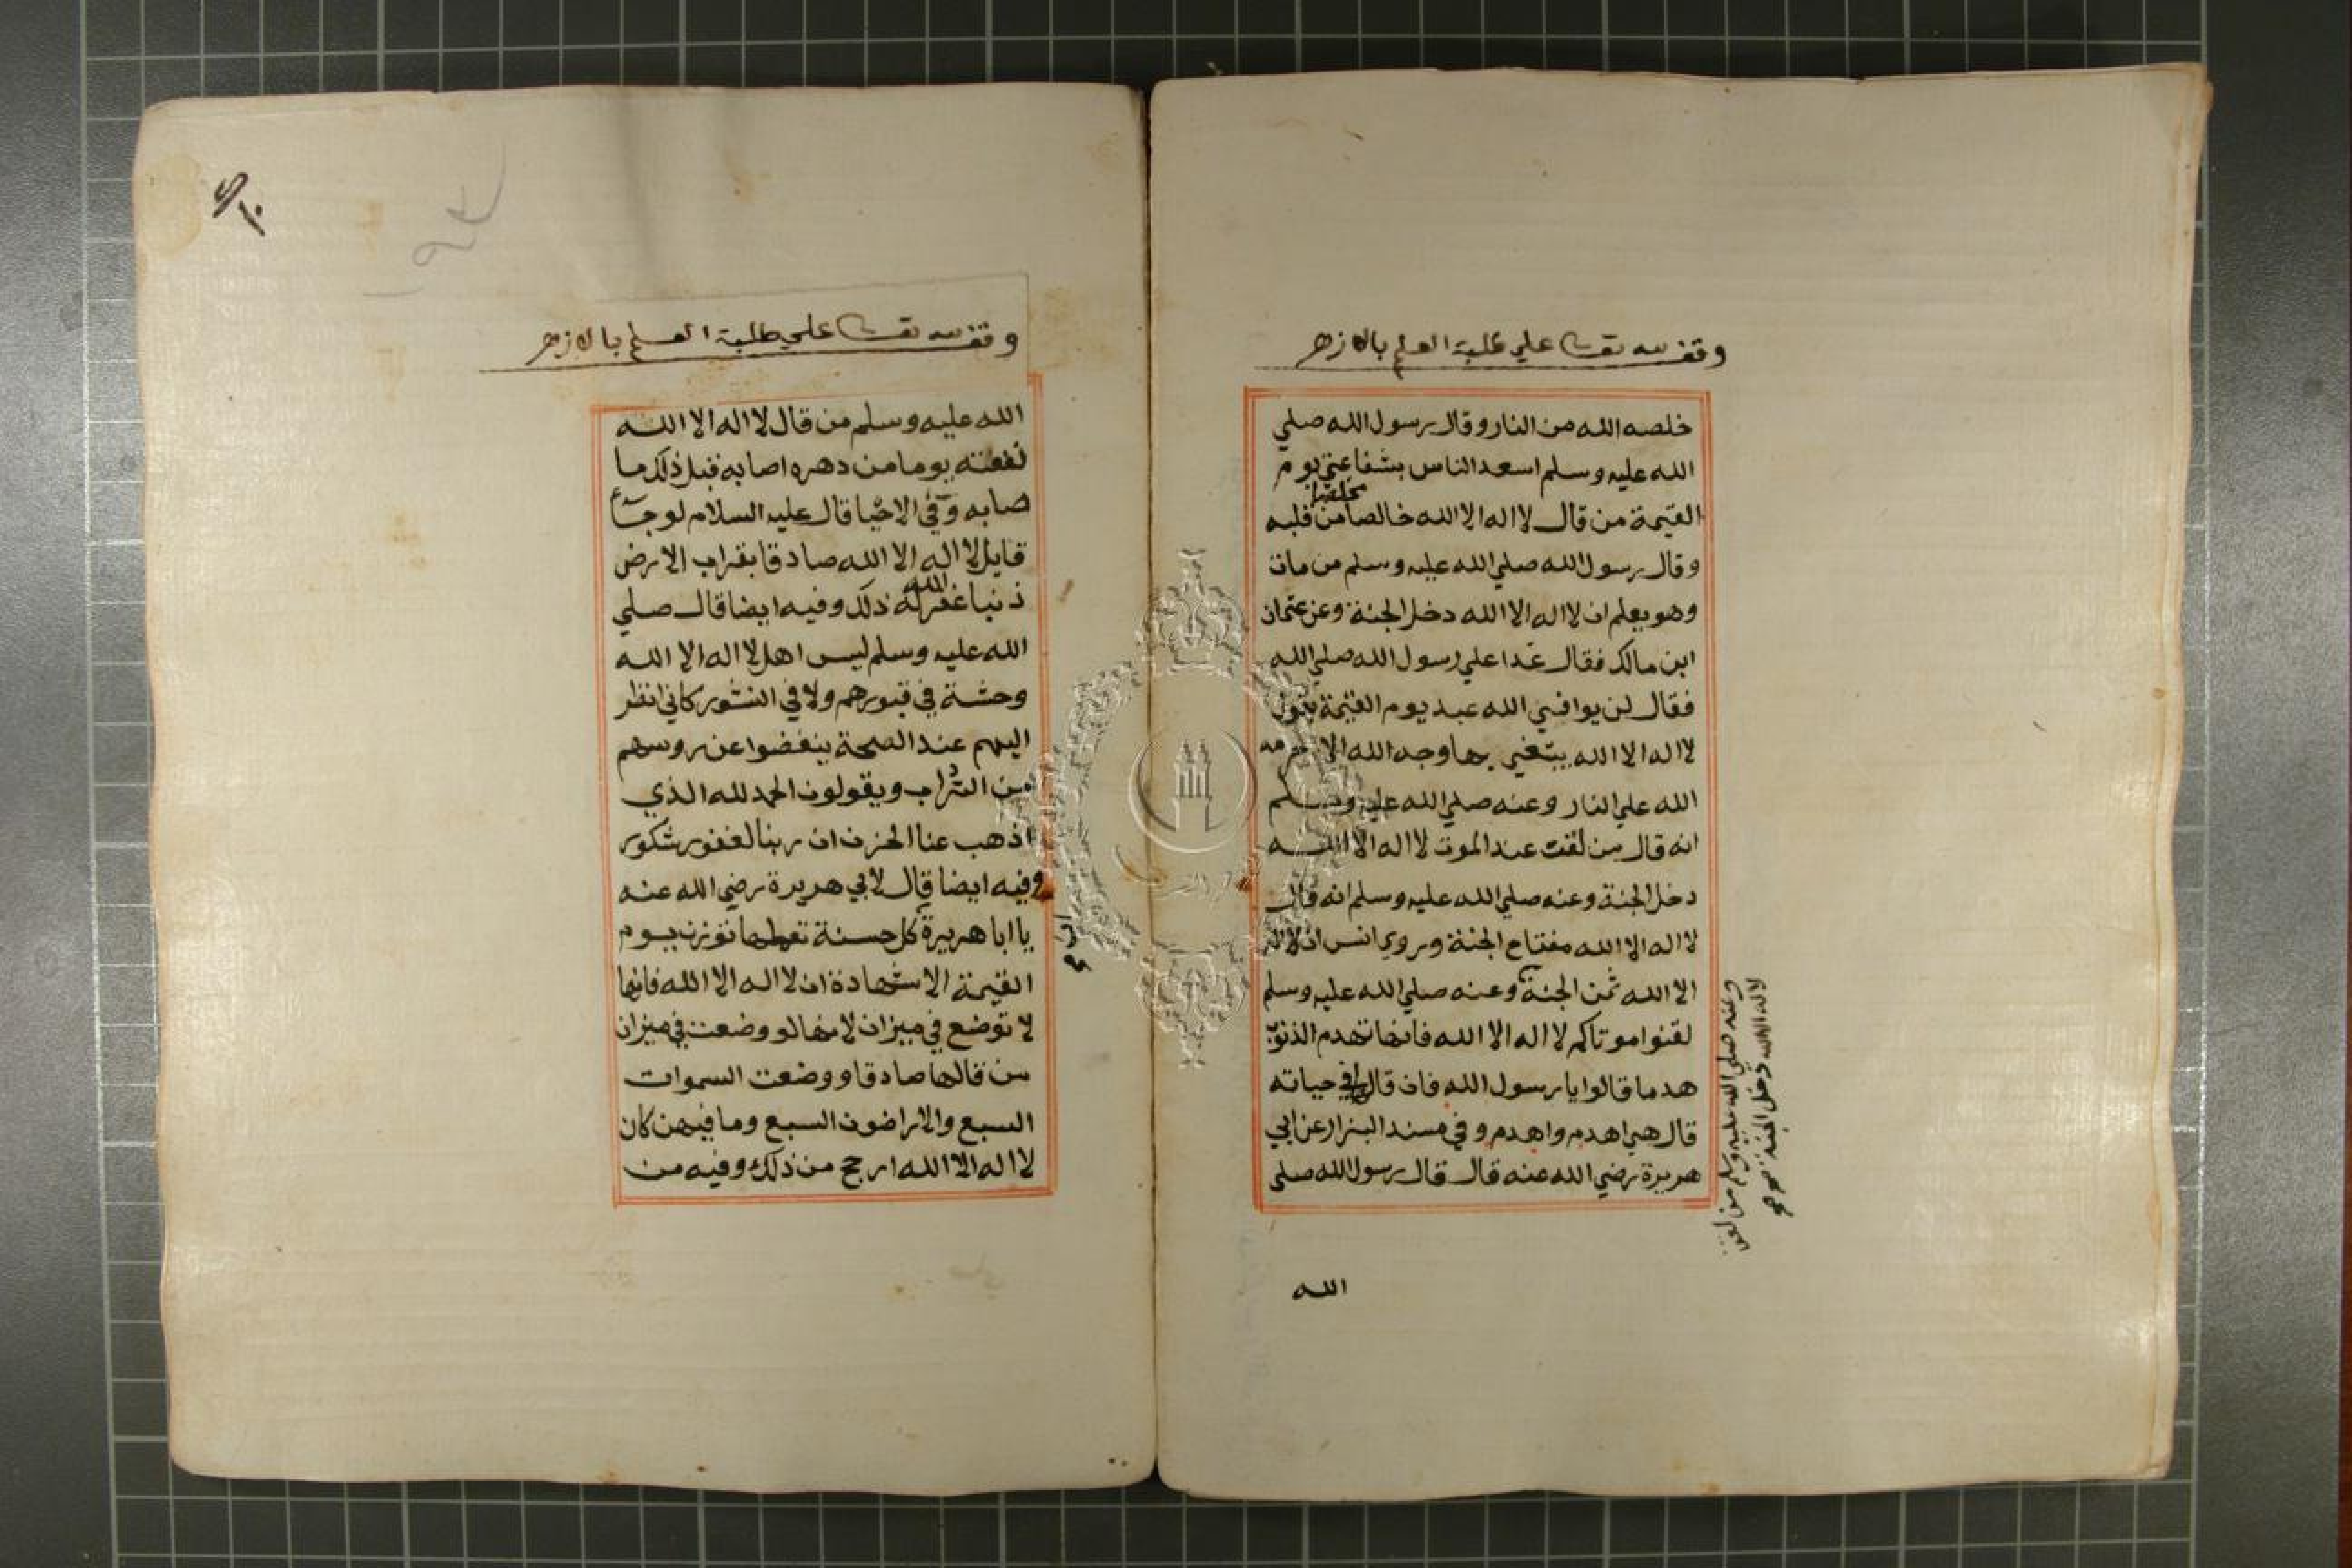 وقف لله تعالى علي طلبة العلم بالازهر
خلصه الله من النار وقال رسول الله صلي
الله عليه وسلم اسعد الناس بشفاعتي يوم
القيمة من قال لا اله الا الله خالصا مخلصا من قلبه
وقال رسول الله صلي الله عليه وسلم من مات
وهو يعلم ان لا اله الا الله دخل الجنة وعن عتمان
ابن مالك فقال غدا علي رسول الله صلي الله
فقال لن يوافي الله عبد يوم القيمة يقول
لا اله الا الله يبتغي بها وجه الله الا حرمه
الله علي النار وعنه صلي الله عليه وسلم
انه قال من لقت عند الموت لا اله الا الله
دخل الجنة وعنه صلي الله عليه وسلم انه قال
لا اله الا الله مفتاح الجنة وروي انس ان لا اله
الا الله ثمن الجنة وعنه صلي الله عليه وسلم
لقنوا موتاكم لا اله الا الله فانها تهدم الذنوب
هدما قالوا يا رسول الله فان قالها في حياته
قال هي اهدم واهدم وفي مسند البزار عن ابي
هريرة رضي الله عنه قال قال رسول الله صلى
وعنه صلي الله عليه وسلم من لقن
لا اله الا الله دخل الجنة
الله
وقف لله تعالى علي طلبة العلم بالازهر
الله عليه وسلم من قال لا اله الا الله
نفعته يوما من دهره اصابه قبل ذلك ما
صابه وفي الاحيا قال عليه السلام لو جاء
قايل لا اله الا الله صادقا بقراب الارض
ذنبا غفر الله له ذلك وفيه ايضا قال صلي
الله عليه وسلم ليس اهل لا اله الا الله
وحشة في قبورهم ولا في النشور كاني انظر
اليهم عند الصحة ينفضوا عن روسهم
من التراب ويقولون الحمد لله الذي
اذهب عنا الحزن ان ربنا لغفور شكور
وفيه ايضا قال لابي هريرة رضي الله عنه
يا ابا هريرة كل حسنة تعملها توزن يوم
القيمة الا شهادة ان لا اله الا الله فانها
لا توضع في ميزان لانها لو وضعت في ميزان
من قالها صادقا ووضعت السموات
السبع والاراضون السبع وما فيهن كان
لا اله الا الله ارجح من ذلك وفيه من